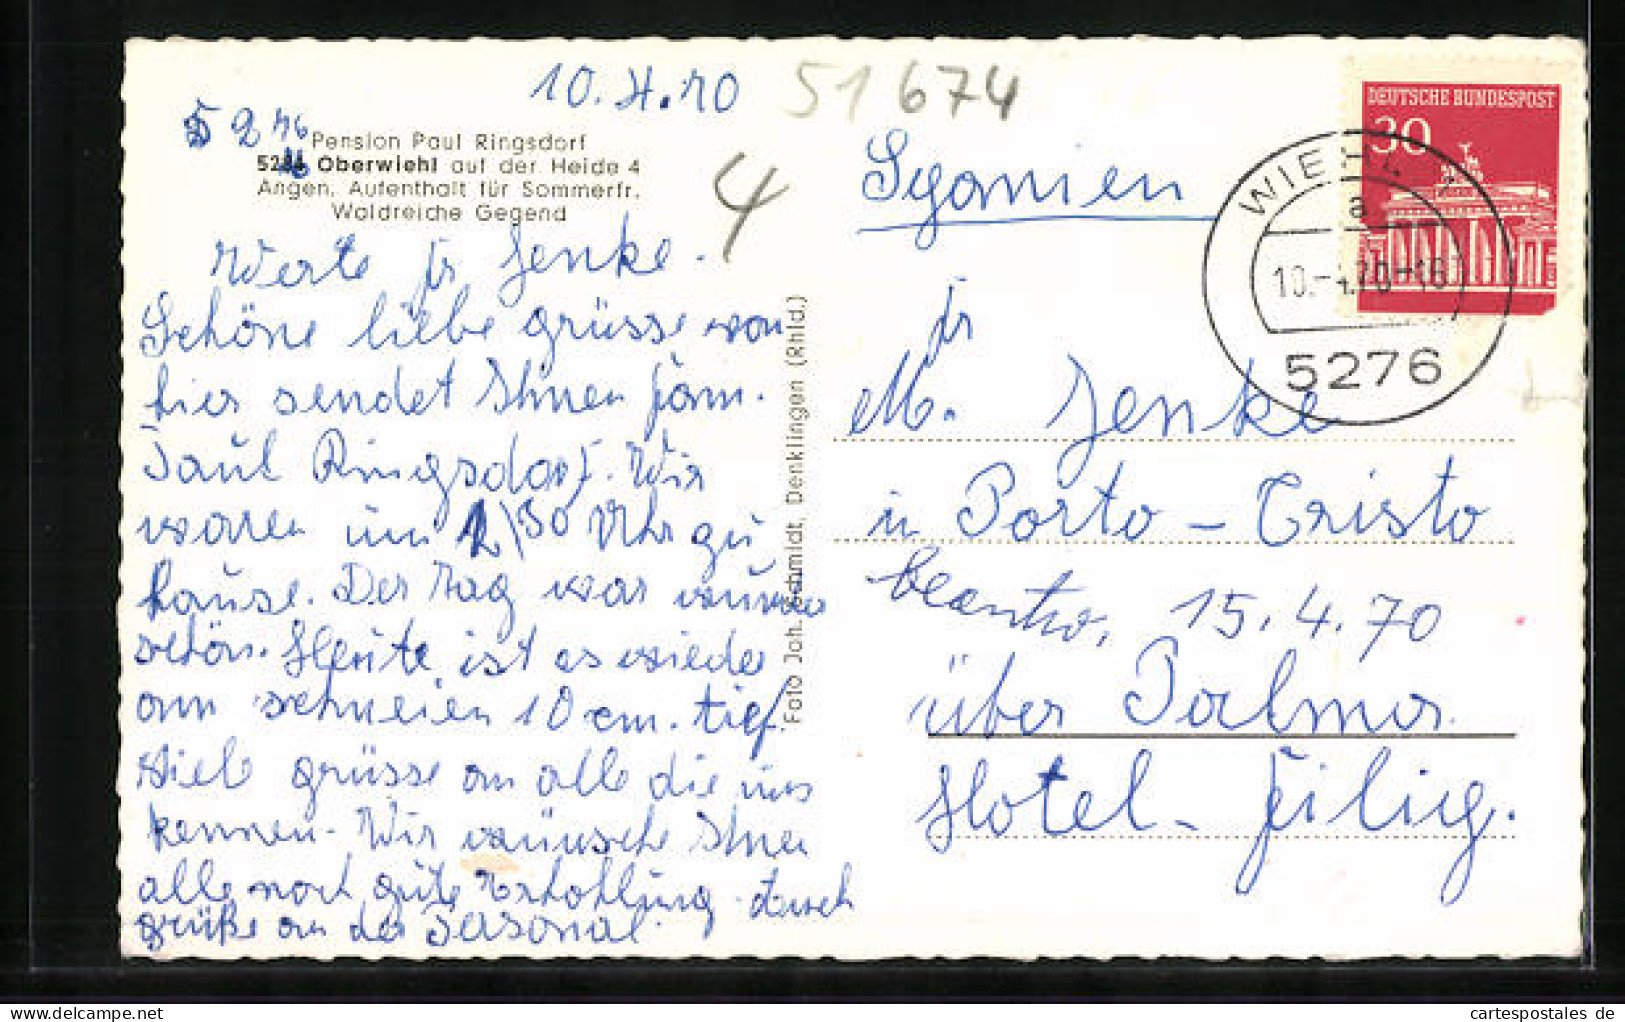 10.4.70 51674
5276
Pension Paul Ringsdorf
Oberwiehl auf der Heide 4
Angen. Aufenthalt für Sommerfr.
Waldreiche Gegend
4
Werte fr Jenke.
Schöne liebe grüsse von
hier sendet Ihnen fam.
Paul Ringsdorf. Wir
waren um Uhr zu
hause. Der tag war
schön. Heute ist es wieder
am schneien 10 cm. tief.
Viele grüsse an alle die uns
kennen. Wir wünsche Ihnen
alle noch gute Erhohlung
grüße an das Personal.
Foto Joh. Schmidt, Denklingen (Rhld.)
DEUTSCHE BUNDESPOST
30
WIEHL 1
a
10.-4.70-16
5276
Spanien
fr
M. Jenke
in Porto - Cristo
beantw. 15.4.70
über Palmar.
Hotel - Feliu.
www.cartespostales.de